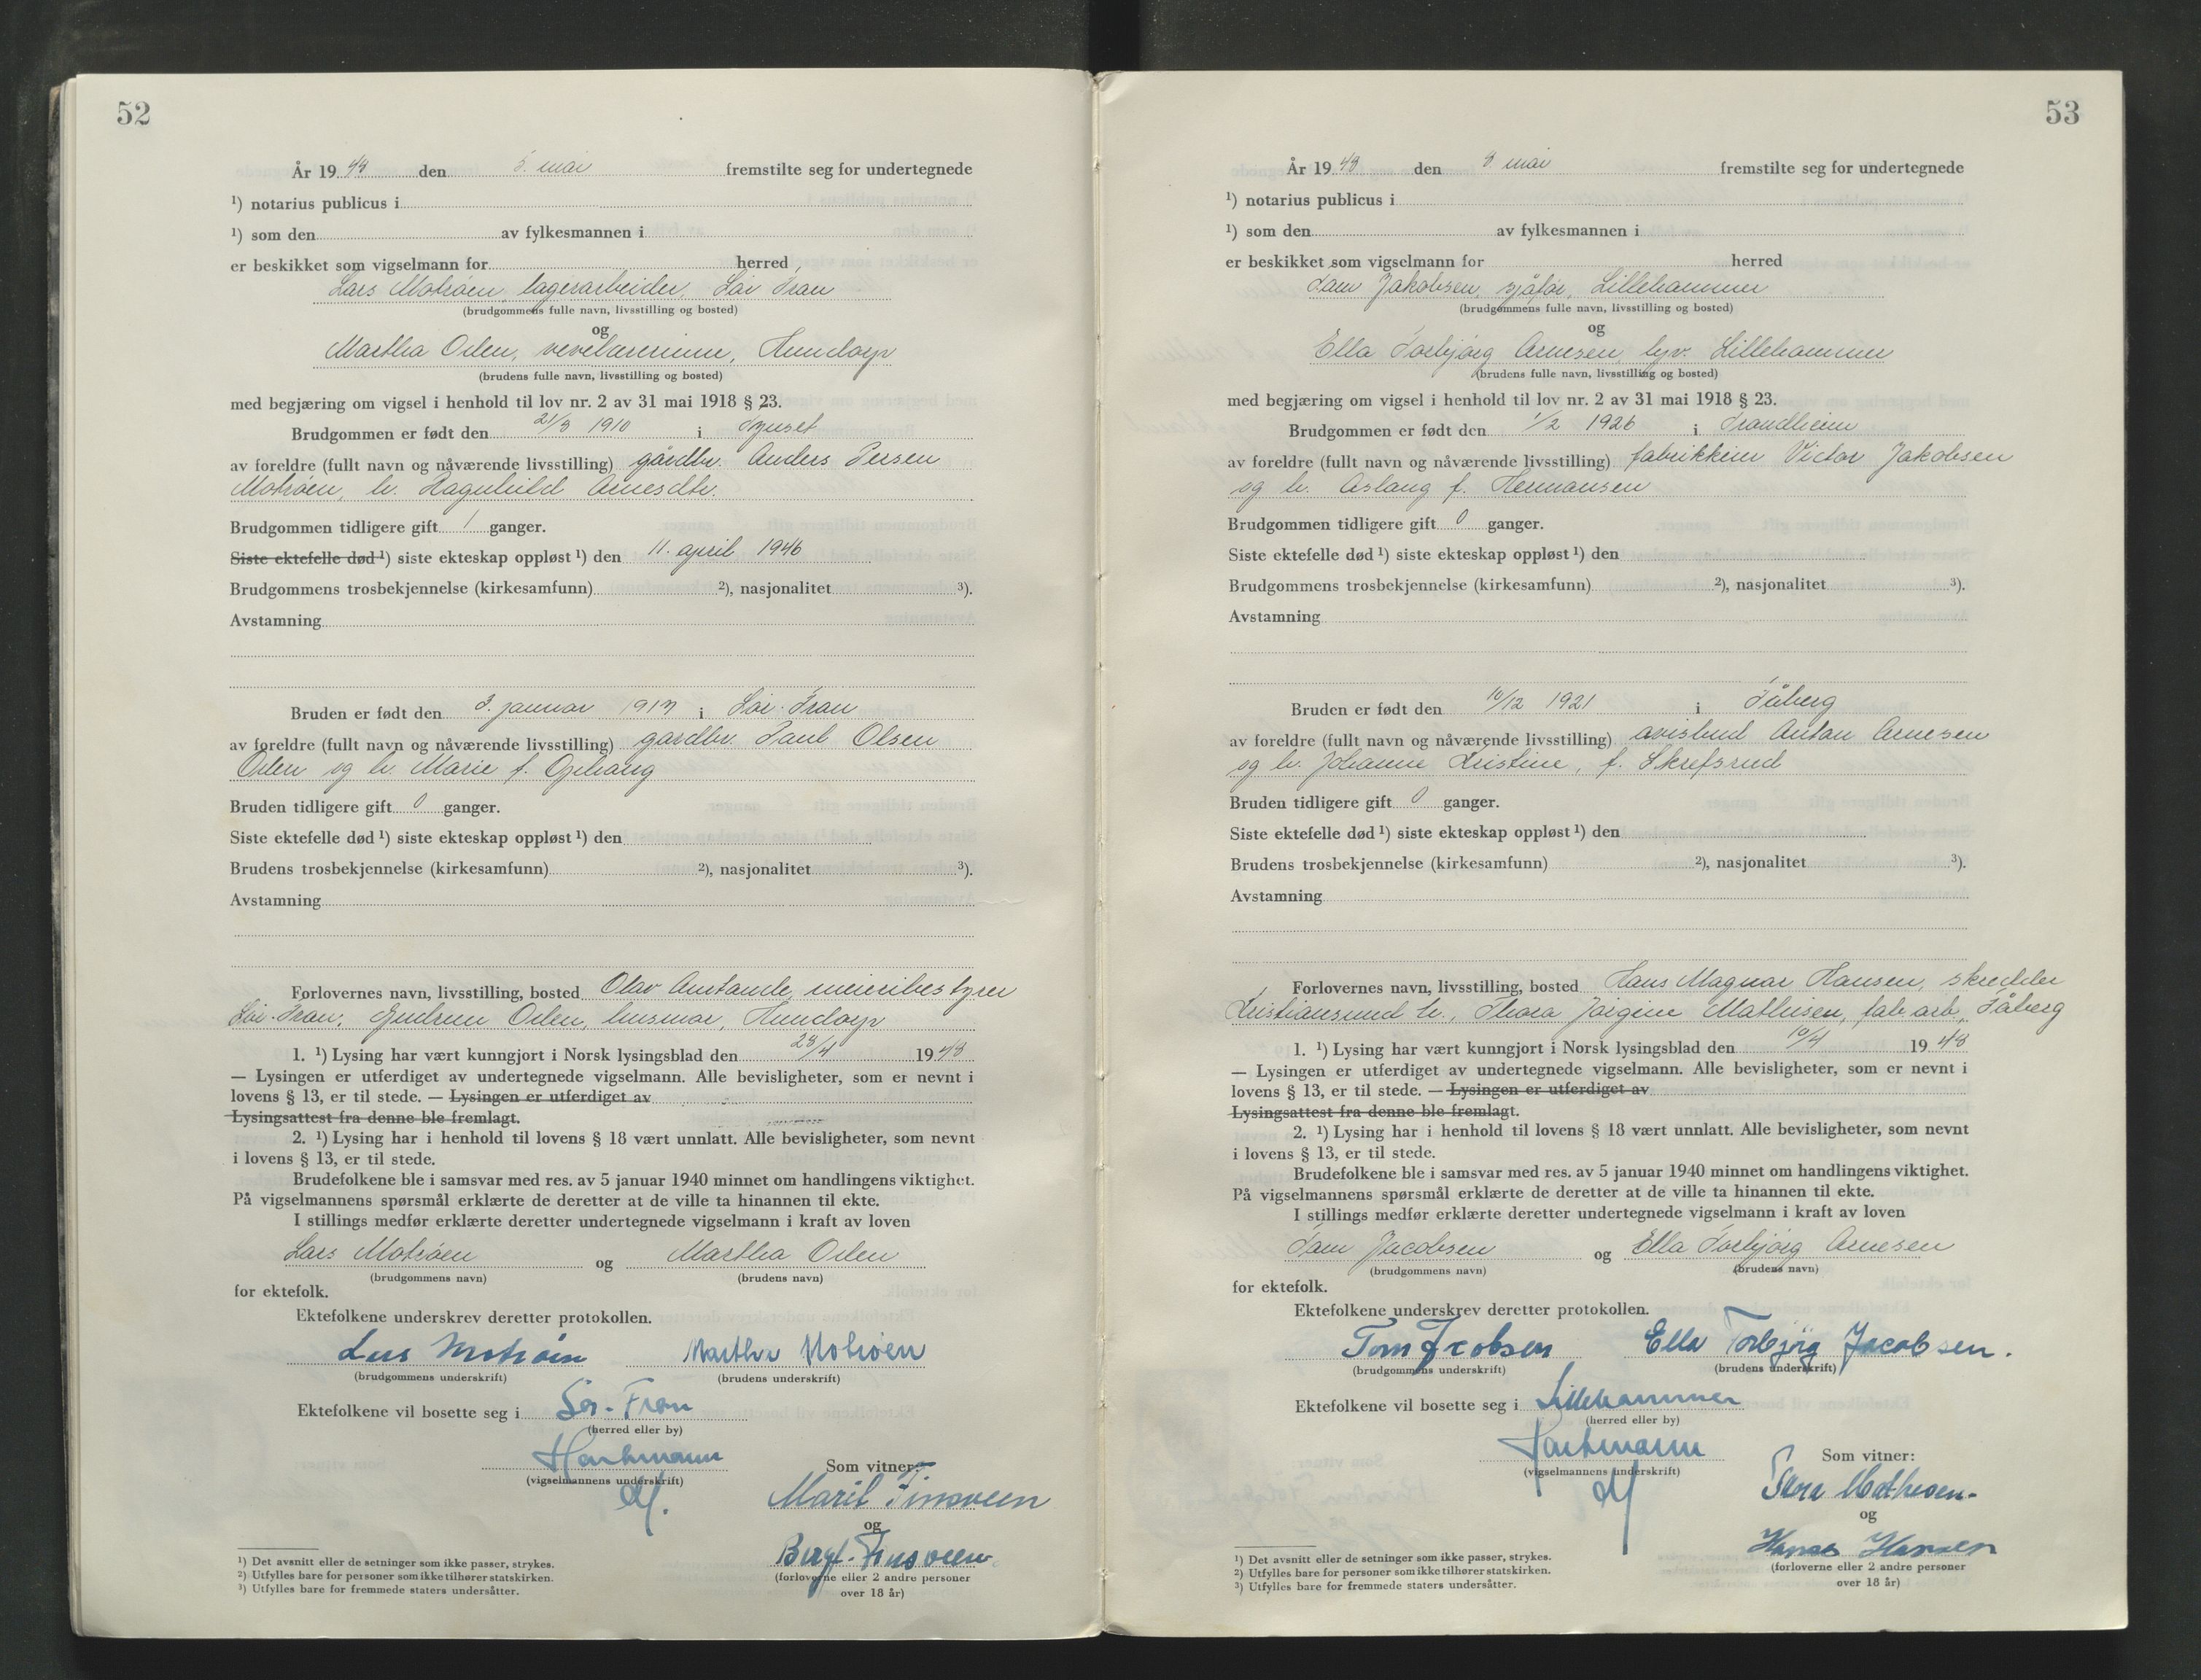 52
År 19 48 den 5. mai fremstilte seg for undertegnede
¹) notarius publicus i
¹) som den av fylkesmannen i
er beskikket som vigselmann for herred
Lars Motrøen, lagerarbeider, Sør Fron
(brudgommens fulle navn, livsstilling og bosted)
og
Martha Oden, vevelærerinne, Hundorp
(brudens fulle navn, livsstilling og bosted)
med begjæring om vigsel i henhold til lov nr. 2 av 31 mai 1918 § 23.
Brudgommen er født den 21/3 1910 i Tynset
av foreldre (fullt navn og nåværende livsstilling) gårdbr. Anders Persen
Motrøen, h. Ragnhild Arnesdtr.
Brudgommen tidligere gift 1 ganger.
Siste ektefelle død ¹) siste ekteskap oppløst ¹) den 11. april 1946
Brudgommens trosbekjennelse (kirkesamfunn) ²), nasjonalitet ³).
Avstamning
Bruden er født den 3. januar 1917 i Sør-Fron
av foreldre (fullt navn og nåværende livsstilling) gardbr. Paul Olsen
Oden og h. Marie f. Ophaug
Bruden tidligere gift 0 ganger.
Siste ektefelle død ¹) siste ekteskap oppløst ¹) den
Brudens trosbekjennelse (kirkesamfunn) ²), nasjonalitet ³).
Avstamning
Forlovernes navn, livsstilling, bosted Olav meieribestyrer
Sør-Fron, Gudrun Oden, husmor, Hundorp
1. ¹) Lysing har vært kunngjort i Norsk lysingsblad den 23/4 19 48
— Lysingen er utferdiget av undertegnede vigselmann. Alle bevisligheter, som er nevnt i
lovens § 13, er til stede. — Lysingen er utferdiget av
Lysingsattest fra denne ble fremlagt.
2. ¹) Lysing har i henhold til lovens § 18 vært unnlatt. Alle bevisligheter, som nevnt
i lovens § 13, er til stede.
Brudefolkene ble i samsvar med res. av 5 januar 1940 minnet om handlingens viktighet.
På vigselmannens spørsmål erklærte de deretter at de ville ta hinannen til ekte.
I stillings medfør erklærte deretter undertegnede vigselmann i kraft av loven
Lars Motrøen og Martha Oden
(brudgommens navn) (brudens navn)
for ektefolk.
Ektefolkene underskrev deretter protokollen.
Lars Motrøen Martha Motrøen
(brudgommens underskrift) (brudens underskrift)
Ektefolkene vil bosette seg i Sør-Fron
(herred eller by)
Hartmann
(vigselmannens underskrift)
Som vitner:
Marit Tinsveen
og
Bergt. Tinsveen
(forloverne eller 2 andre personer
over 18 år)
¹) Det avsnitt eller de setninger som ikke passer, strykes.
²) Utfylles bare for personer som ikke tilhører statskirken.
³) Utfylles bare for fremmede staters undersåtter.
53
År 19 48 den 8 mai fremstilte seg for undertegnede
¹) notarius publicus i
¹) som den av fylkesmannen i
er beskikket som vigselmann for herred
Tom Jakobsen, sjåfør, Lillehammer
(brudgommens fulle navn, livsstilling og bosted)
og
Ella Torbjørg Arnesen, hjv. Lillehammer
(brudens fulle navn, livsstilling og bosted)
med begjæring om vigsel i henhold til lov nr. 2 av 31 mai 1918 § 23.
Brudgommen er født den 1/2 1926 i Trondheim
av foreldre (fullt navn og nåværende livsstilling) fabrikkeier Victor Jakobsen
og h. Aslaug f. Hermansen
Brudgommen tidligere gift 0 ganger.
Siste ektefelle død ¹) siste ekteskap oppløst ¹) den
Brudgommens trosbekjennelse (kirkesamfunn) ²), nasjonalitet ³).
Avstamning
Bruden er født den 10/12 1921 i Fåberg
av foreldre (fullt navn og nåværende livsstilling) avisbud Anton Arnesen
og h. Johanne Kristine, f. Skrefsrud
Bruden tidligere gift 0 ganger.
Siste ektefelle død ¹) siste ekteskap oppløst ¹) den
Brudens trosbekjennelse (kirkesamfunn) ²), nasjonalitet ³).
Avstamning
Forlovernes navn, livsstilling, bosted Hans Magnar Hansen, skredder
Kristiansund N., Thora Jørgine Mathisen, fab.arb., Fåberg
1. ¹) Lysing har vært kunngjort i Norsk lysingsblad den 10/4 19 48
— Lysingen er utferdiget av undertegnede vigselmann. Alle bevisligheter, som er nevnt i
lovens § 13, er til stede. — Lysingen er utferdiget av
Lysingsattest fra denne ble fremlagt.
2. ¹) Lysing har i henhold til lovens § 18 vært unnlatt. Alle bevisligheter, som nevnt
i lovens § 13, er til stede.
Brudefolkene ble i samsvar med res. av 5 januar 1940 minnet om handlingens viktighet.
På vigselmannens spørsmål erklærte de deretter at de ville ta hinannen til ekte.
I stillings medfør erklærte deretter undertegnede vigselmann i kraft av loven
Tom Jacobsen og Ella Torbjørg Arnesen
(brudgommens navn) (brudens navn)
for ektefolk.
Ektefolkene underskrev deretter protokollen.
Tom Jacobsen Ella Torbjörg Jacobsen.
(brudgommens underskrift) (brudens underskrift)
Ektefolkene vil bosette seg i Lillehammer
(herred eller by)
Hartmann
(vigselmannens underskrift)
Som vitner:
Tora Mathisen
og
Hans Hansen
(forloverne eller 2 andre personer
over 18 år)
¹) Det avsnitt eller de setninger som ikke passer, strykes.
²) Utfylles bare for personer som ikke tilhører statskirken.
³) Utfylles bare for fremmede staters undersåtter.